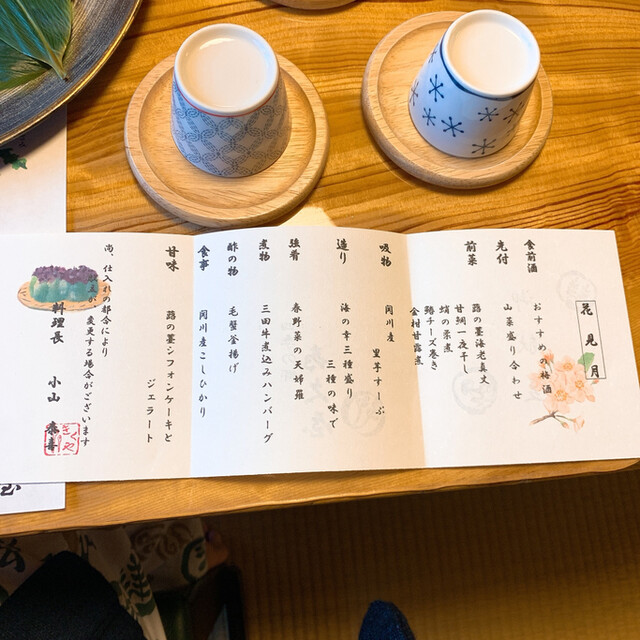 花見月
食前酒
おすすめの梅酒
先付
山菜盛り合わせ
前菜
蕗の薹海老真丈
甘鯛一夜干し
蛸の柔煮
鰆チーズ巻き
金柑甘露煮
吸物
関川産
里芋すーぷ
造り
海の幸三種盛り
三種の味で
強肴
春野菜の天婦羅
煮物
三田牛煮込みハンバーグ
酢の物
毛蟹釜揚げ
食事
関川産こしひかり
甘味
蕗の薹シフォンケーキと
ジェラート
尚、仕入れの都合により
変更する場合がございます
料理長 小山